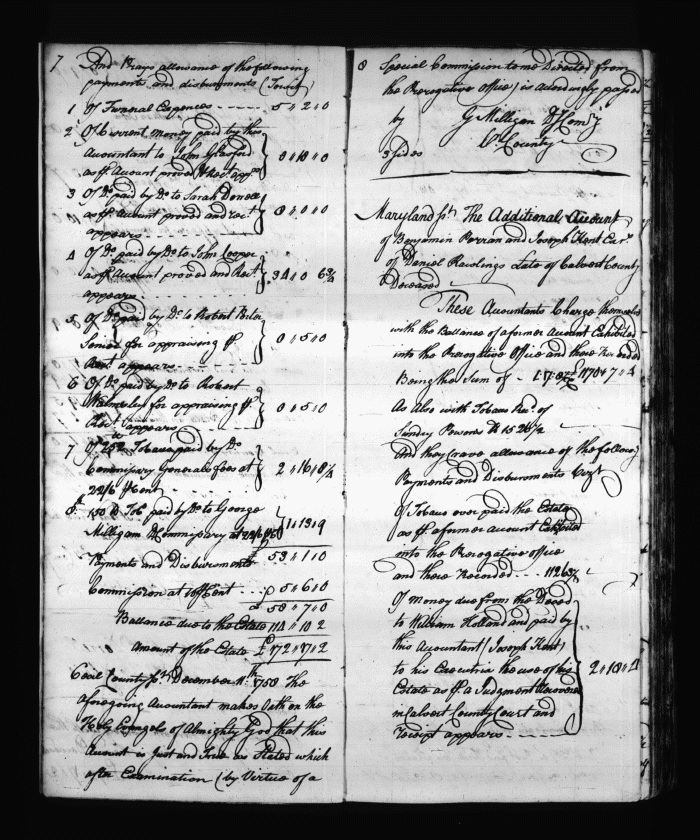 7 And Prays allowance of the following
payments and disbursments (To wit)
1 Of Funeral Expences - - - - - 5 " 2 " 0
2 Of Current money paid by this
Accountant to John
as pr Account proved & Rect. appears 0 " 10 " 0
3 Of Do. paid by Do. to Sarah
as pr Account proved and rect.
appears 0 " 4 " 0
4 Of Do. paid by Do. to John Cooper
as pr Account proved and Rect.
appears 34 " 0 6¾
5 Of Do. paid by Do. to Robert
Senior for appraising pr
Rect. appears 0 " 5 " 0
6 Of Do. paid by Do. to Robert
Walmsley for appraising pr
Rect. appears 0 " 5 " 0
7 Of 252 lb Tobacco paid by Do.
Commissary Generals fees at
22/6 pr Cent 2 " 16 " 8¼
8 Of 150 lb Tob. paid by Do. to George
Milligan D Commissary at 22/6 1 " 13 " 9
Payments and Disbursments £ 53 " 1 " 0
Commission at 10 pr Cent 5 " 6 " 0
58 " 7 " 0
Ballance due to the Estate 114 " 10 2
Amount of the Estate £ 172 " 17 " 2
Cecil County sst. December 11th 1758 The
aforegoing Accountant makes Oath on the
Holy Evangels of Almighty God that this
Account is Just and True as Stated which
after Examination (by Virtue of a
8 Special Commission to me Directed from
the Prerogative office) is accordingly passed
by G Milligan D Comry.
Cl. County
3 sides
Maryland sst. The Additional Account
of Benjamin Perran and Joseph Kent Exrs.
of Daniel Rawlings Late of Calvert County
Deceased
These Accountants Charge themselves
with the Ballance of a former Account Exhibited
into the Prerogative Office and there Recorded
Being the Sum of - 1704 7 " 4
As Also with Tobacco Recd. of
Sundry Persons lb 1526½
And they crave allowance of the following
Payments and Disbursments Vizt.
Of Tobacco over paid the Estate
as pr a former account Exhibited
into the Prerogative office
and there Recorded - - - 11263½
Of Money due from the Deced
to William Holland and paid by
this Accountant (Joseph Kent)
to his Executrix the use of his
Estate as pr a Judgment Recovered
in Calvert County Court and
receipt appears 2 " 18 " 1